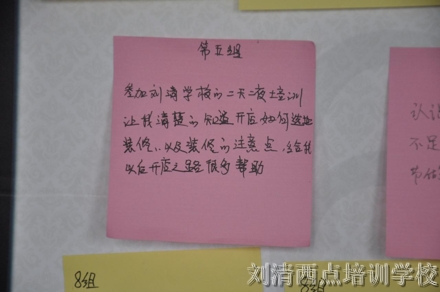 第五组
参加刘清学校的二天二夜培训
让我清楚的知道开店如何选址
装修,以及装修的注意点,给我
以后开店之路很多帮助
认识
不足
8组
8组
刘清西点培训学校